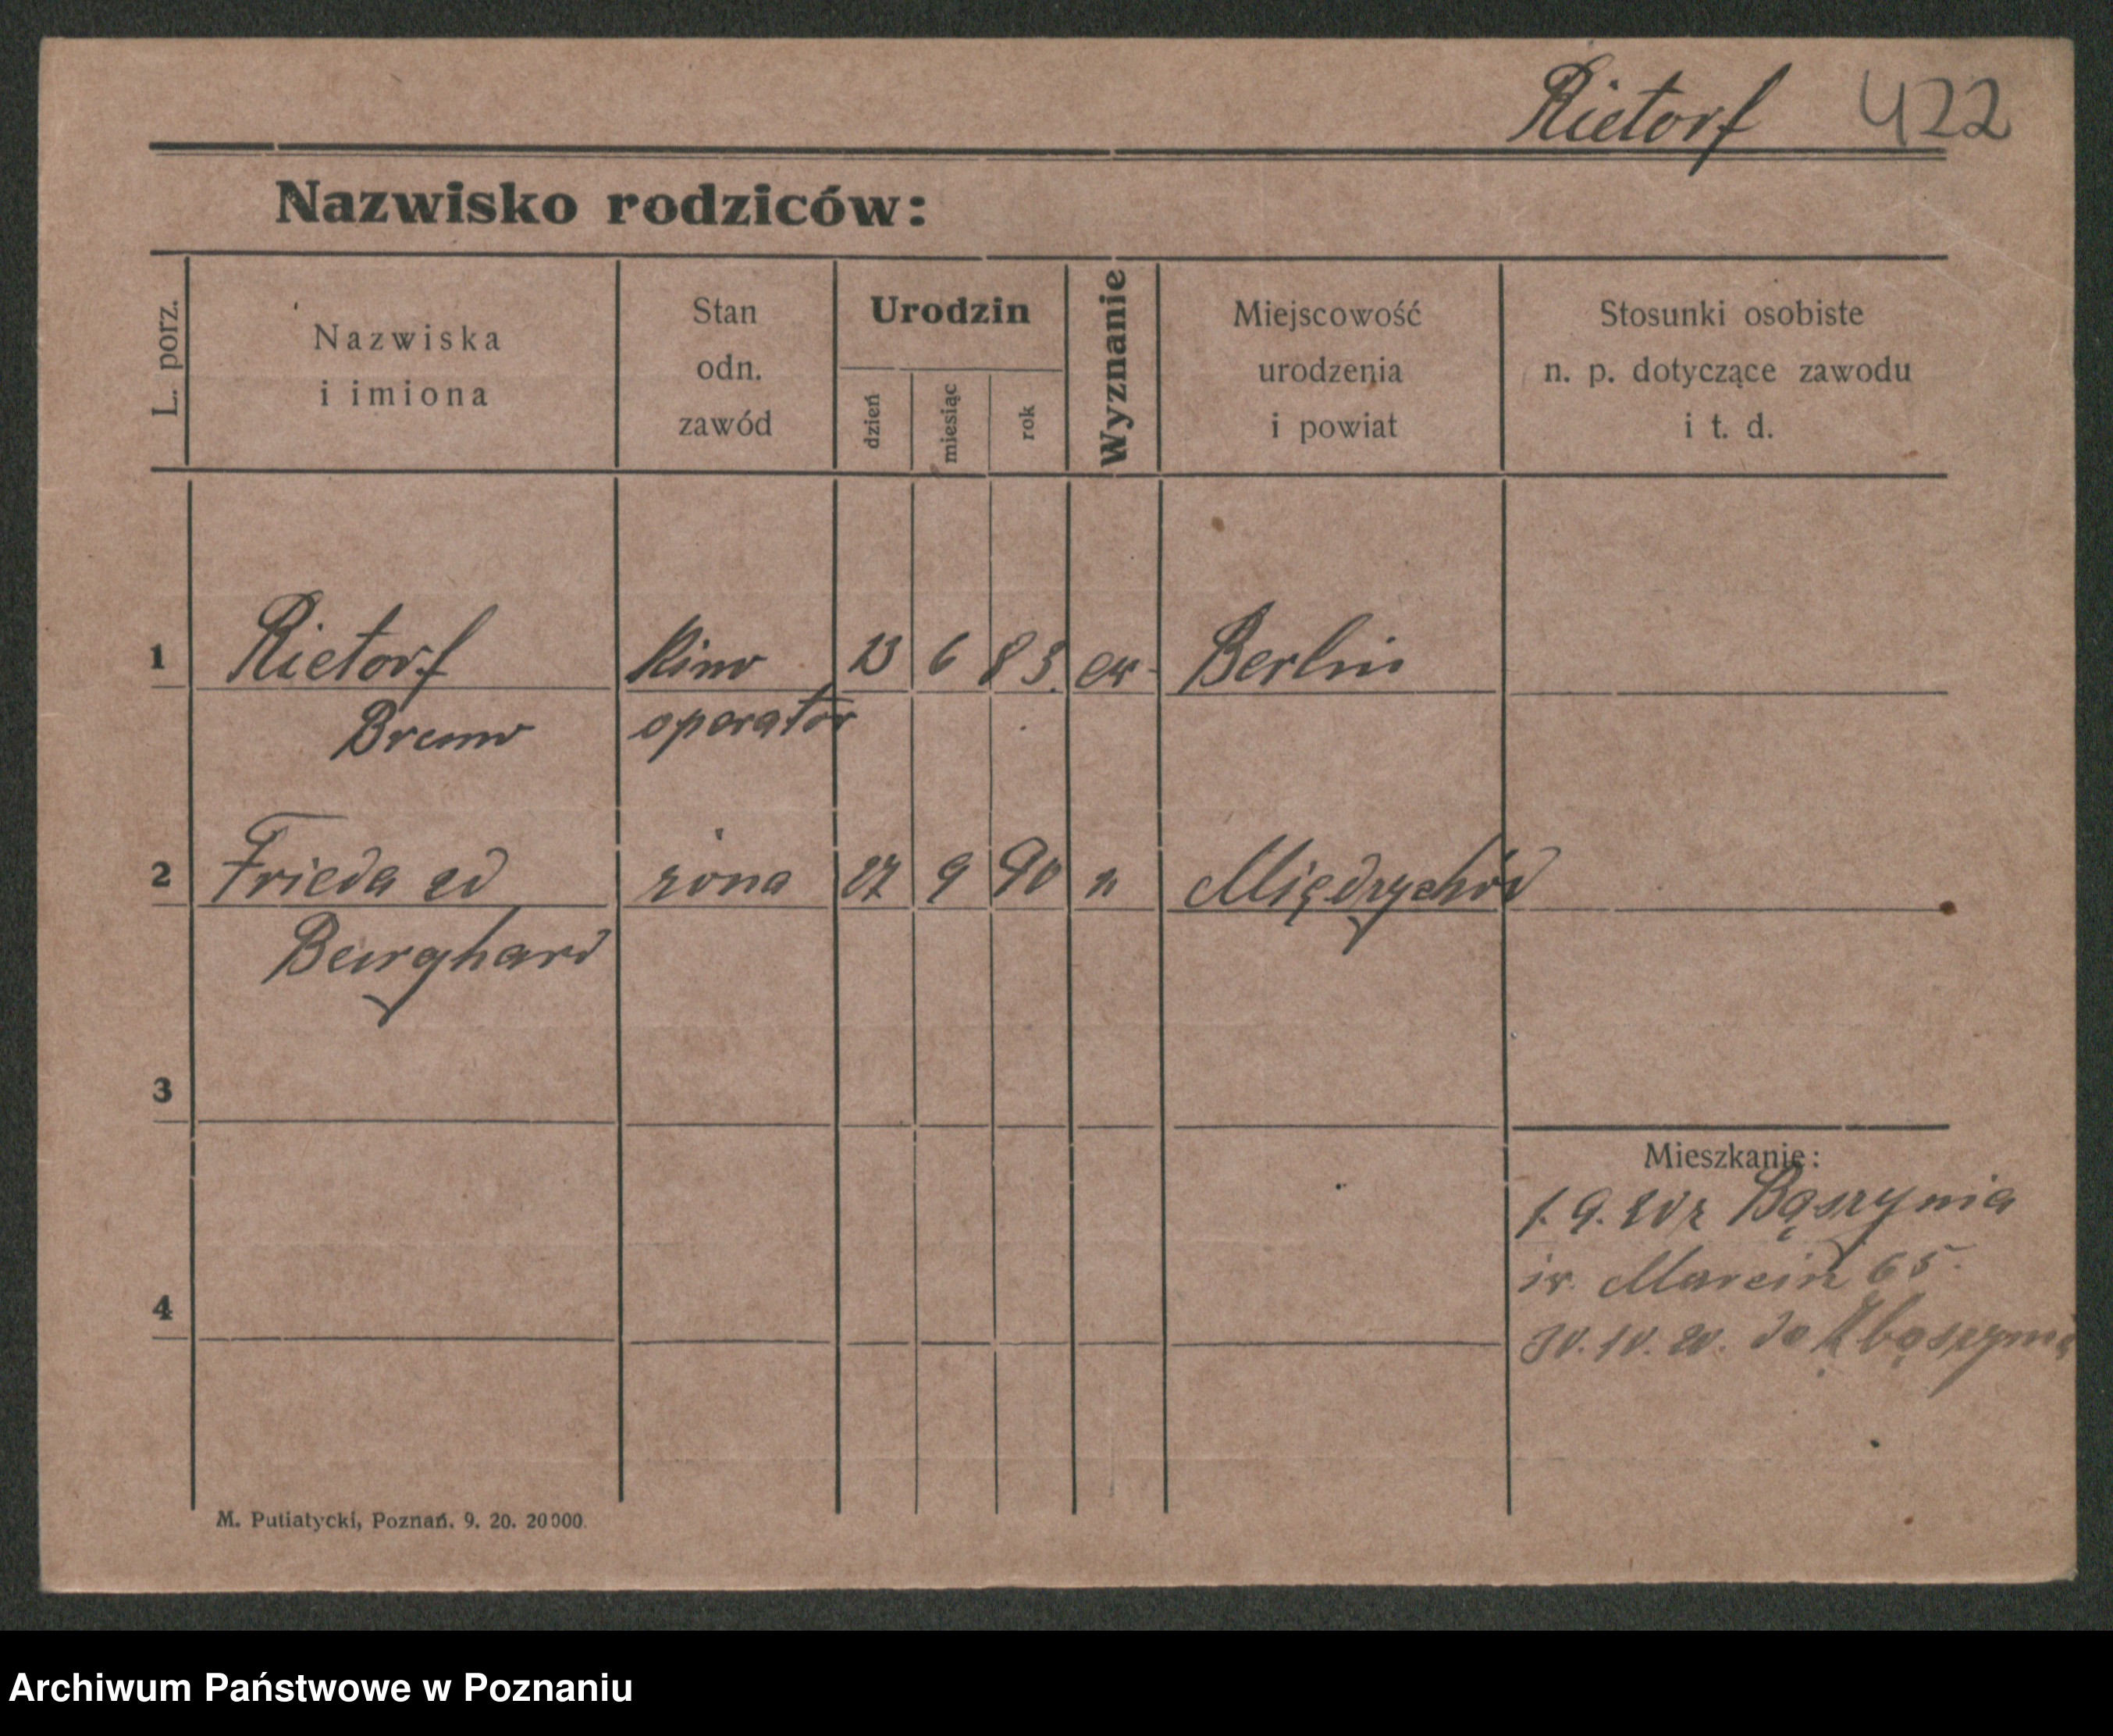 Rietorf 422
Nazwisko rodziców:
L. porz.
Nazwiska
i imiona
Stan
odn.
zawód
Urodzin
dzień
miesiąc
rok
Wyznanie
Miejscowość
urodzenia
i powiat
Stosunki osobiste
n. p. dotyczące zawodu
i t. d.
1 Rietorf Kino 23 6 83. ew Berlin
Bruno operator
2 Frieda zd żona 27 9 90 " Międzychód
Burghard
3
Mieszkanie:
1. 9. 20 z Bąszynia
św. Marcin 65.
4
30. 10. 20. do Zbąszynia
M. Putiatycki, Poznań. 9. 20. 20000.
Archiwum Państwowe w Poznaniu